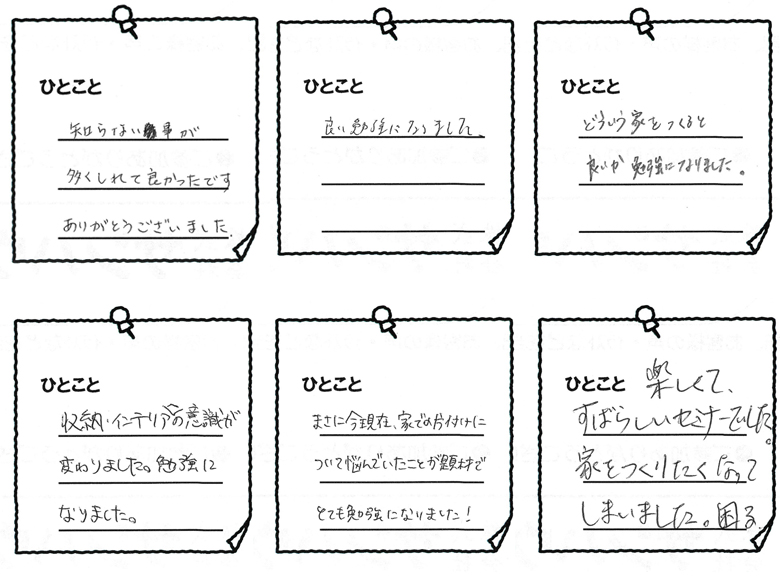 ひとこと
知らない事が
多くしれて良かったです
ありがとうございました。
ひとこと
良い勉強になりました。
ひとこと
どういう家をつくると
良いか 勉強になりました。
ひとこと
収納・インテリアへの意識が
変わりました。勉強に
なりました。
ひとこと
まさに今現在、家での片付けに
ついて悩んでいたことが題材で
とても勉強になりました!
ひとこと 楽しくて、
すばらしいセミナーでした。
家をつくりたくなって
しまいました。困る